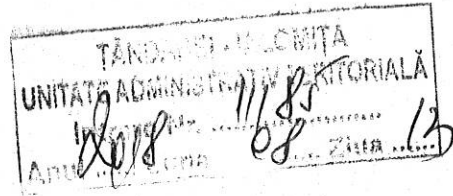 ȚĂNDĂREI - IALOMIȚA
UNITATE ADMINISTRATIV TERITORIALĂ
Nr. 11185
Anul 2018 Luna 08 Ziua 13